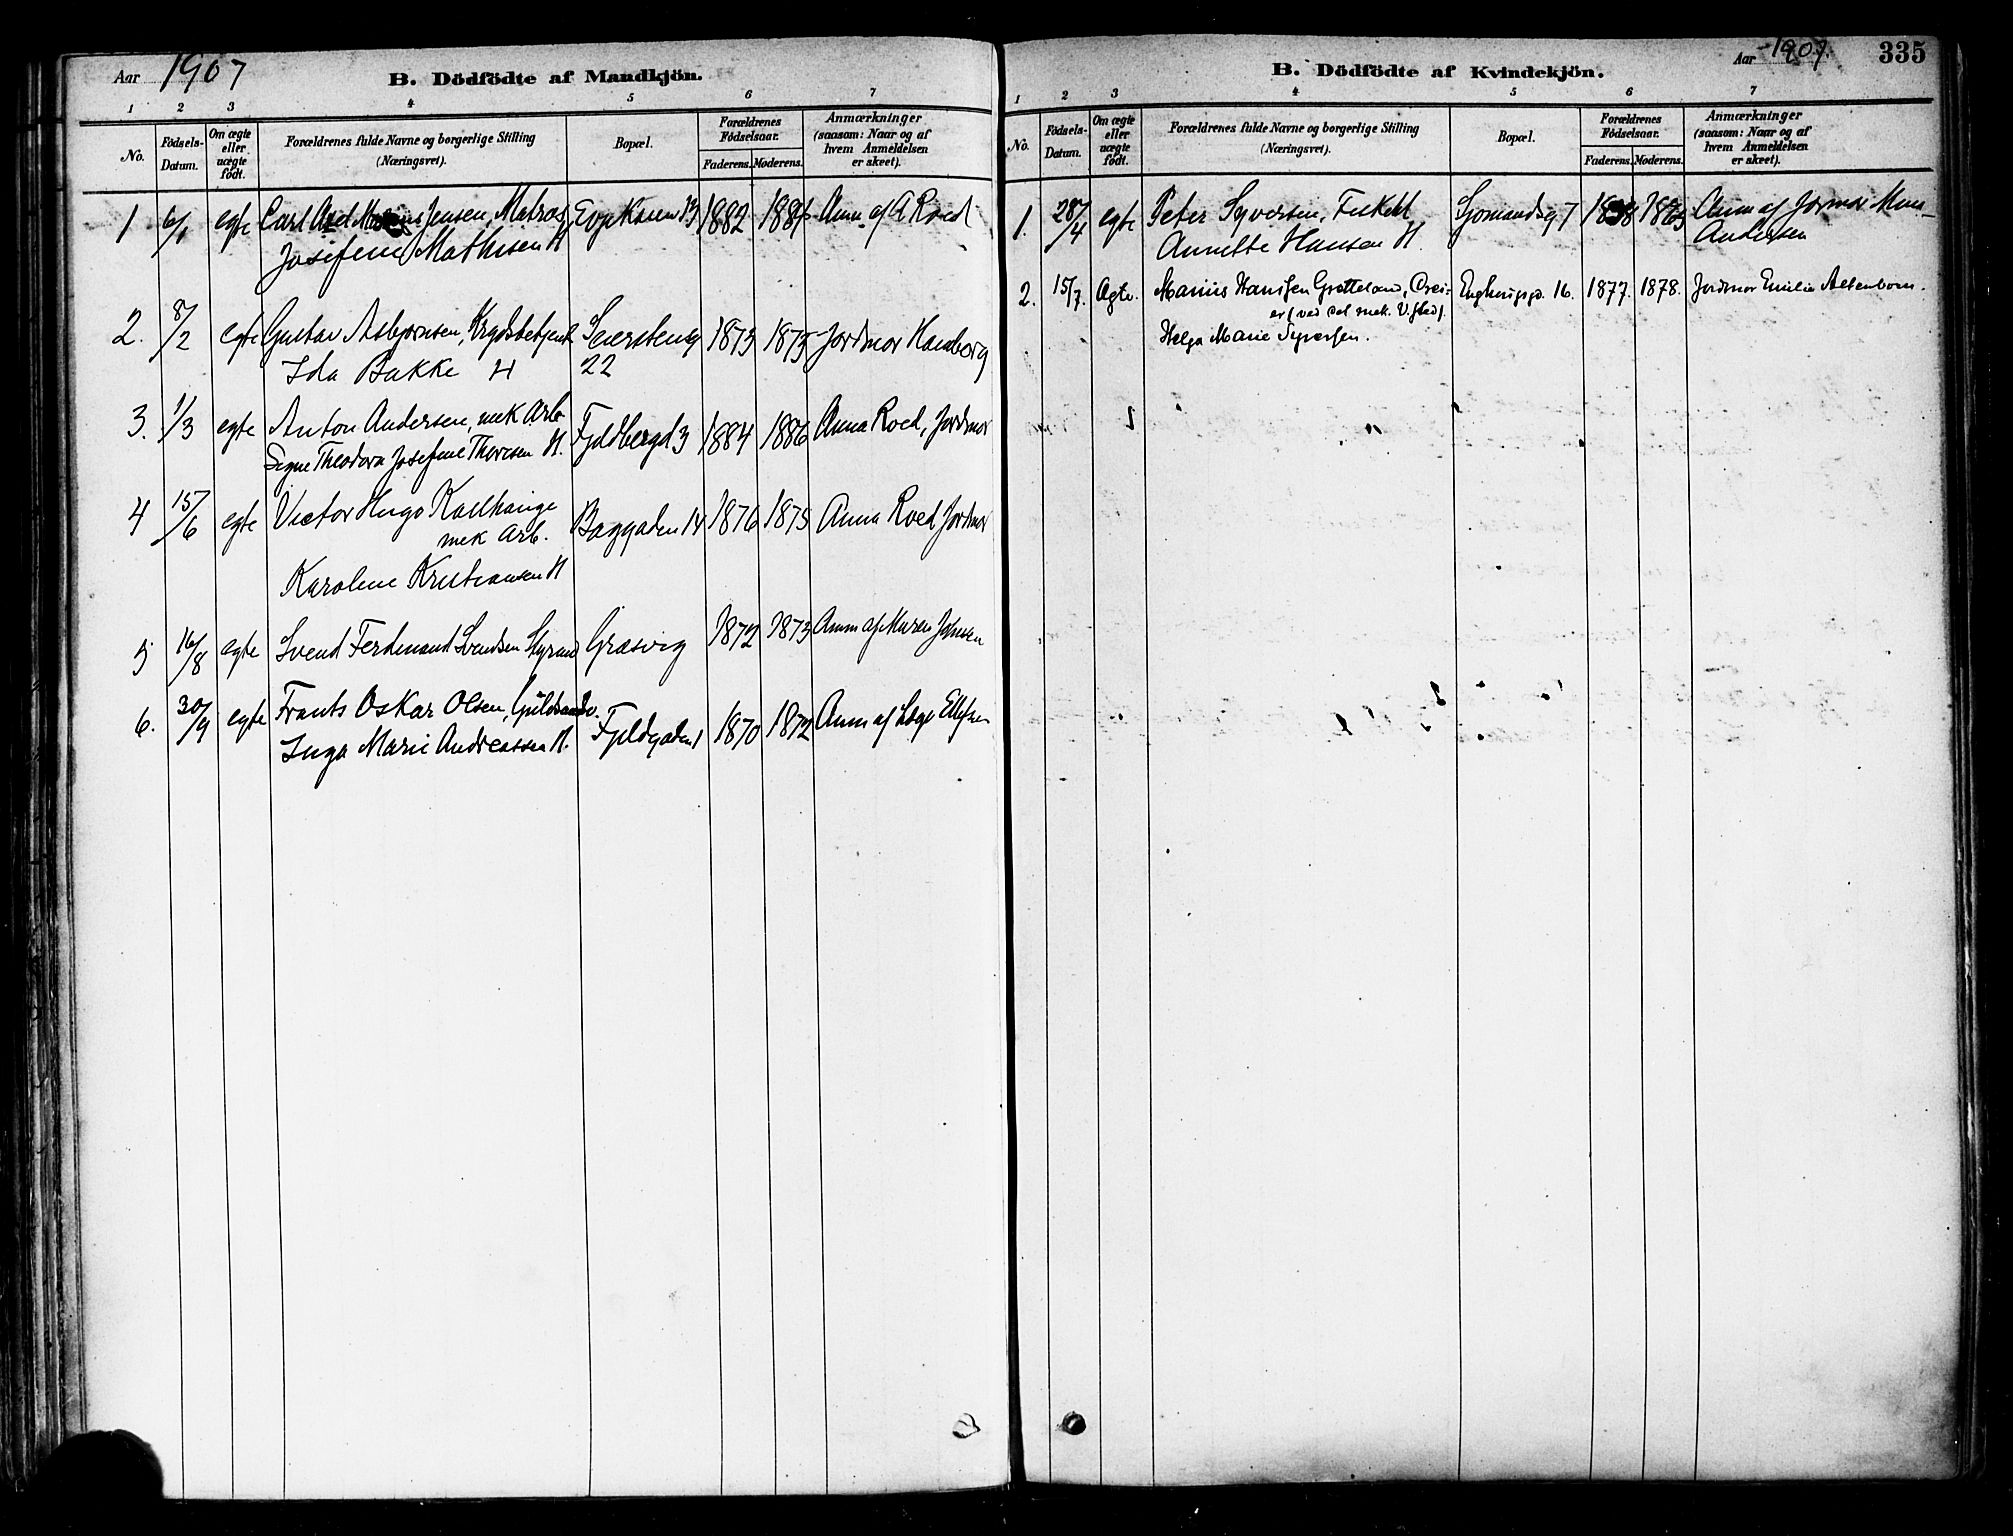 Aar 1907
B. Dödfödte af Mandkjön.
1 2 3 4 5 6 7
No.
Födsels-Datum.
Om ægte eller uægte födt.
Forældrenes fulde Navne og borgerlige Stilling (Næringsvei).
Bopæl.
Forældrenes Födselsaar.
Faderens. Moderens.
Anmærkninger (saasom: Naar og af hvem Anmeldelsen er skeet).
1 6/1 egte Carl Jensen, Matros 13 1882 Anm. af A Roed
Josefine Mathisen H
2. 8/2 egte Gustav Asbjørnsen, 1873 1875 Jordmor Hamborg
Ida Bakke H 22
3. 1/3 egte Anton Andersen, mek Arb. 1884 1886 Anna Roed, Jordmor
Signe Theodora Josefine Thoresen H.
4 15/6 egte Victor Hugo 14 1876 1875 Anna Roed Jordmor
mek Arb.
Karoline Kristiansen H
5 16/8 egte Svend Ferdinand Svendsen Styrmd Græsvig 1872 1873 Anm af Maren Johnsen
6. 30/9 egte Frants Oskar Olsen, Fjeldgaden 1 1870 1872 Anm af Læge Ellefsen
Inga Marie Andreassen H.
Aar 1907. 335
B. Dödfödte af Kvindekjön.
1 2 3 4 5 6 7
No.
Födsels-Datum.
Om ægte eller uægte födt.
Forældrenes fulde Navne og borgerlige Stilling (Næringsvei).
Bopæl.
Forældrenes Födselsaar.
Faderens. Moderens.
Anmærkninger (saasom: Naar og af hvem Anmeldelsen er skeet).
1. 28/4 egte Peter Syversen, Sjømandsg 7 Anm af Jormor
Annette Hansen H. Andersen
2. 15/7. Ægte. Marius Hansen Grøtteland, Drei- 16. 1877. 1878. Jordmor Emilie Altenborn.
er (ved det mek. V.sted).
Helga Marie Syversen.